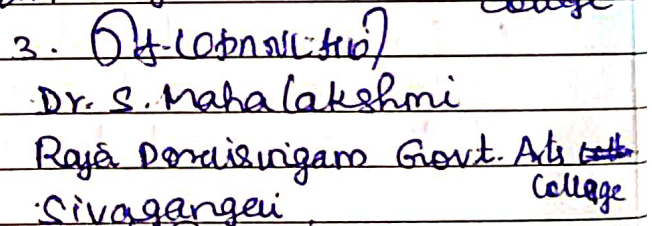 College
3.
Dr. S. Mahalakshmi
Raja Doraisingam Govt. Arts
College
Sivagangai